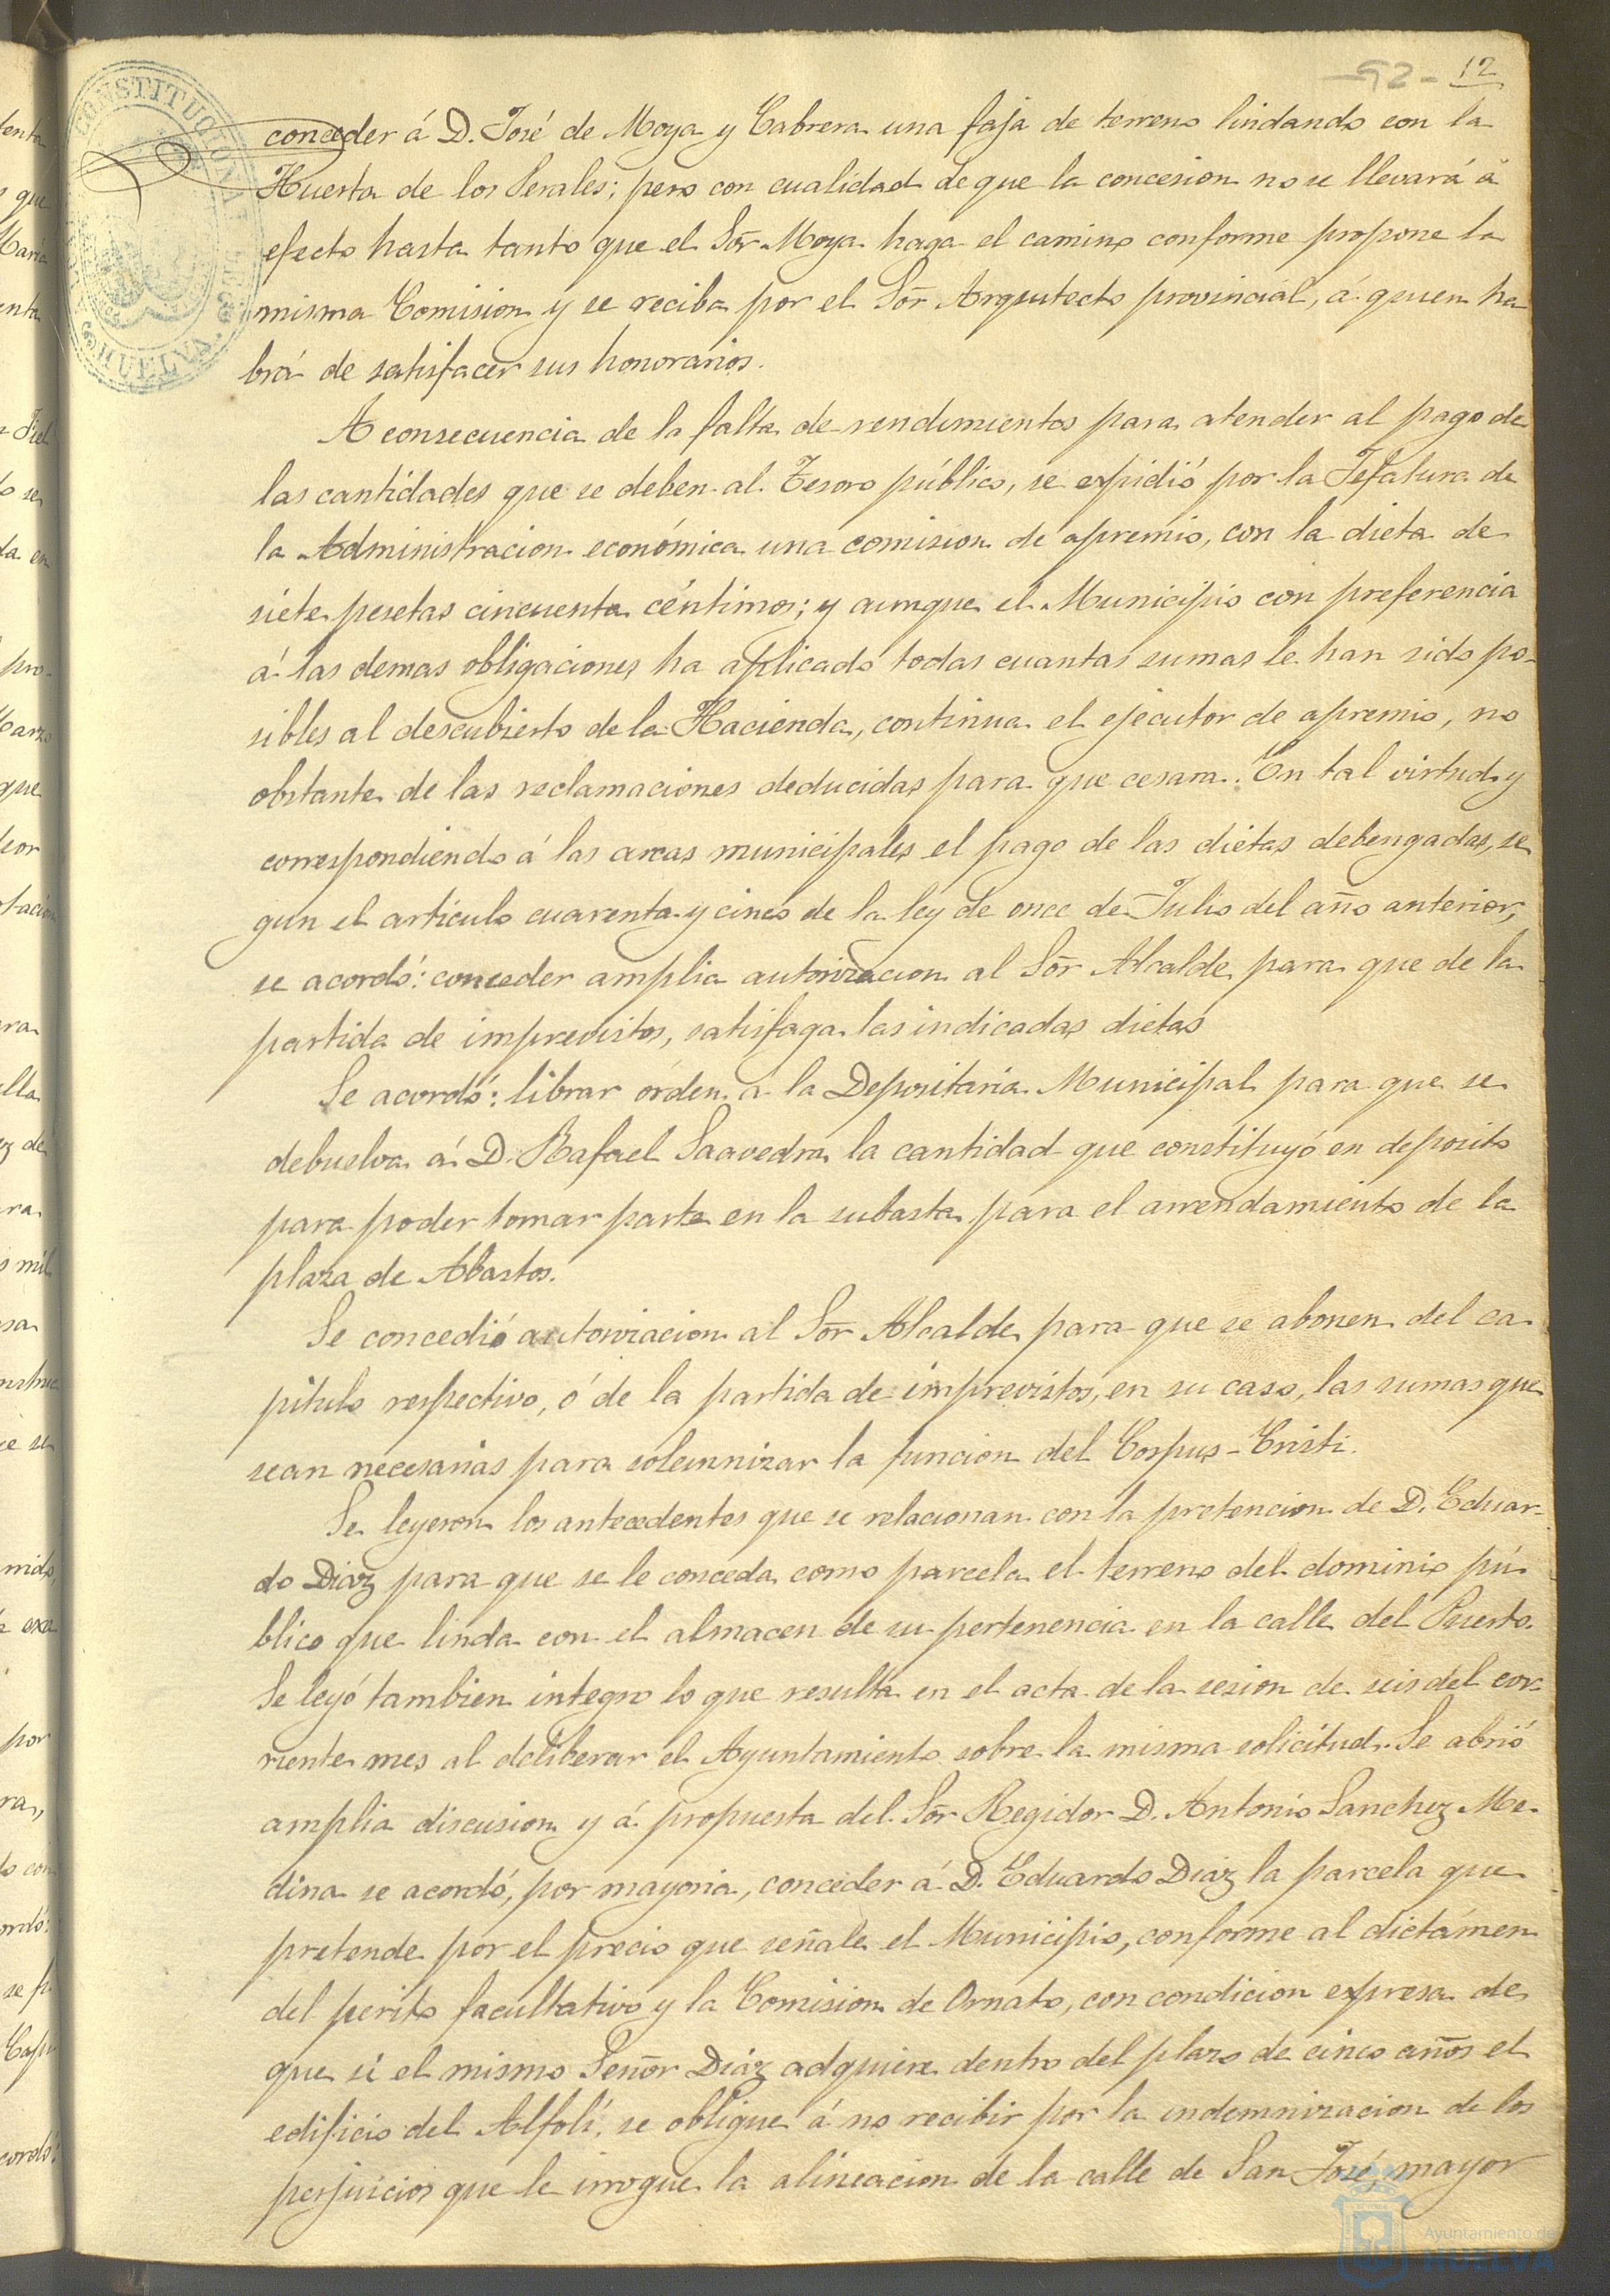 92 - 12
conceder á D. José de Moya y Cabrera una faja de terreno lindando con la
Huerta de los Perales; pero con cualidad de que la concesion no se llevará á
efecto hasta tanto que el Sõr Moya haga el camino conforme propone la
misma Comision y se reciba por el Sõr Arquitecto provincial, á quien ha
brá de satisfacer sus honorarios.
A consecuencia de la falta de rendimientos para atender al pago de
las cantidades que se deben al Tesoro público, se expidió por la Jefatura de
la Administracion económica una comision de apremio, con la dieta de
siete pesetas cincuenta céntimos; y aunque el Municipio con preferencia
á las demas obligaciones ha aplicado todas cuantas sumas le han sido po-
sibles al descubierto de la Hacienda, continua el ejecutor de apremio, no
obstante de las reclamaciones deducidas para que cesara. En tal virtud y
correspondiendo á las arcas municipales el pago de las dietas debengadas, se
gun el artículo cuarenta y cinco de la ley de once de Julio del año anterior,
se acordó: conceder amplia autorizacion al Sõr Alcalde para que de la
partida de imprevistos, satisfaga las indicadas dietas
Se acordó: librar órden á la Depositaria Municipal para que se
debuelva á D. Rafael Saavedra la cantidad que constituyó en deposito
para poder tomar parte en la subasta para el arrendamiento de la
plaza de Abastos.
Se concedió autorizacion al Sõr Alcalde para que se abonen del ca-
pitulo respectivo, ó de la partida de imprevistos, en su caso, las sumas que
sean necesarias para solemnizar la funcion del Corpus-Cristi.
Se leyeron los antecedentes que se relacionan con la pretencion de D. Eduar-
do Diaz para que se le conceda como parcela el terreno del dominio pú-
blico que linda con el almacen de su pertenencia en la calle del Puerto.
Se leyó tambien integro lo que resulta en el acta de la sesion de seis del cor-
riente mes al deliberar el Ayuntamiento sobre la misma solicitud. Se abrió
amplia discusion y á propuesta del Sõr Regidor D. Antonio Sanchez Me-
dina se acordó, por mayoria, conceder á D. Eduardo Diaz la parcela que
pretende por el precio que señale el Municipio, conforme al dictámen
del perito facultativo y la Comision de Ornato, con condicion expresa de
que si el mismo Señor Diaz adquiere dentro del plazo de cinco años el
edificio del Alfolí, se obligue á no recibir por la indemnizacion de los
perjuicios que le irrogue la alineacion de la calle de San José, mayor
CONSTITUCIONAL DE
HUELVA
Ayuntamiento de
HUELVA